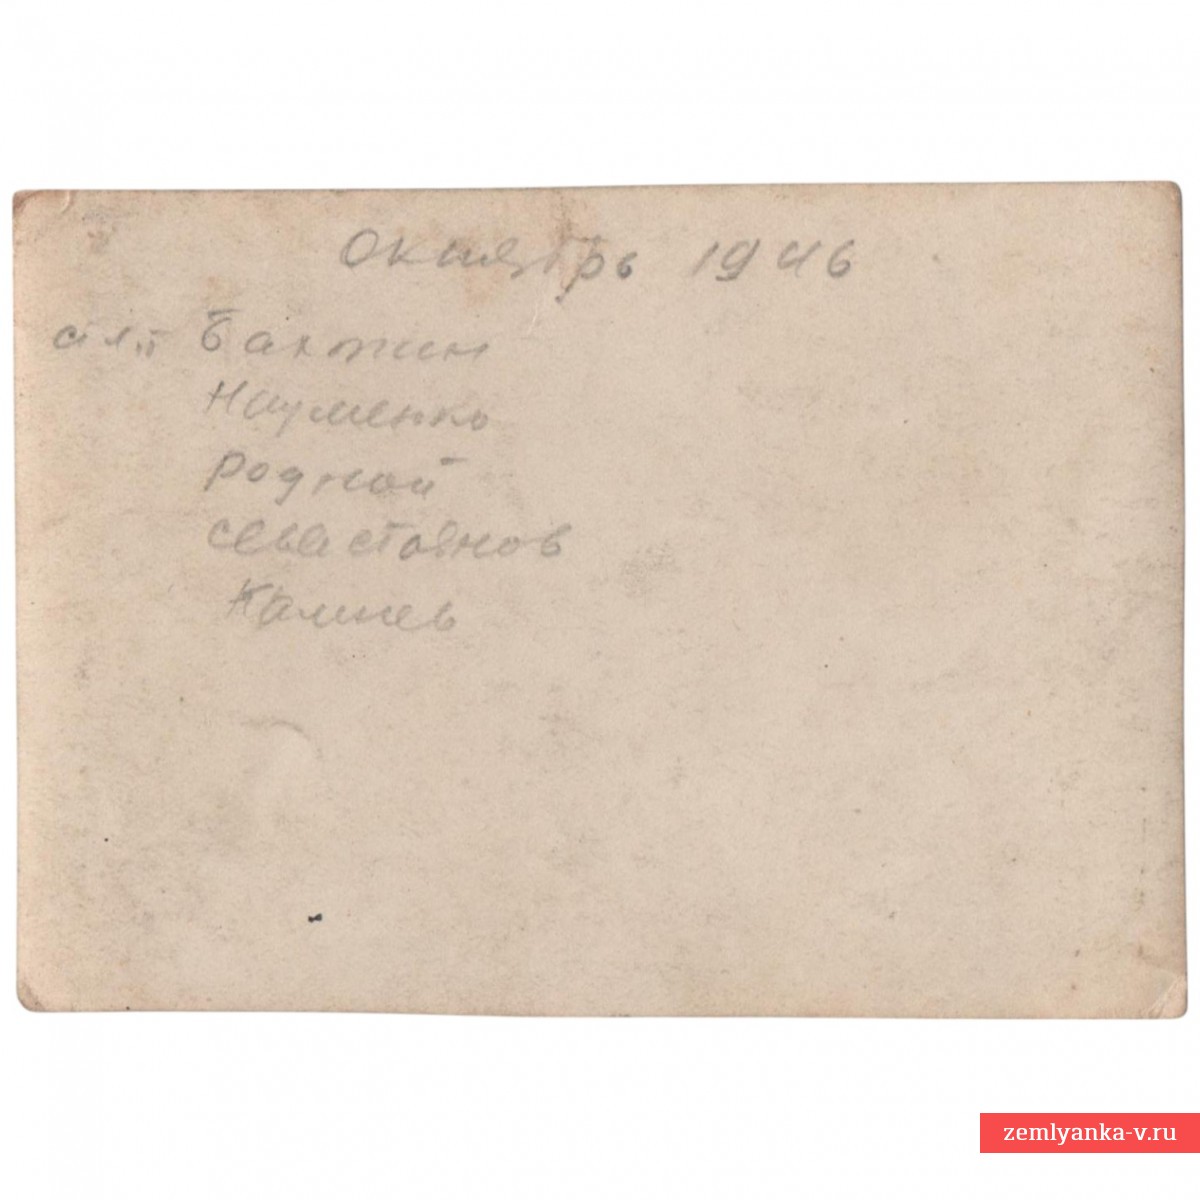 Октябрь 1946
Бахтин
Науменко
Родной
Севастьянов
zemlyanka-v.ru